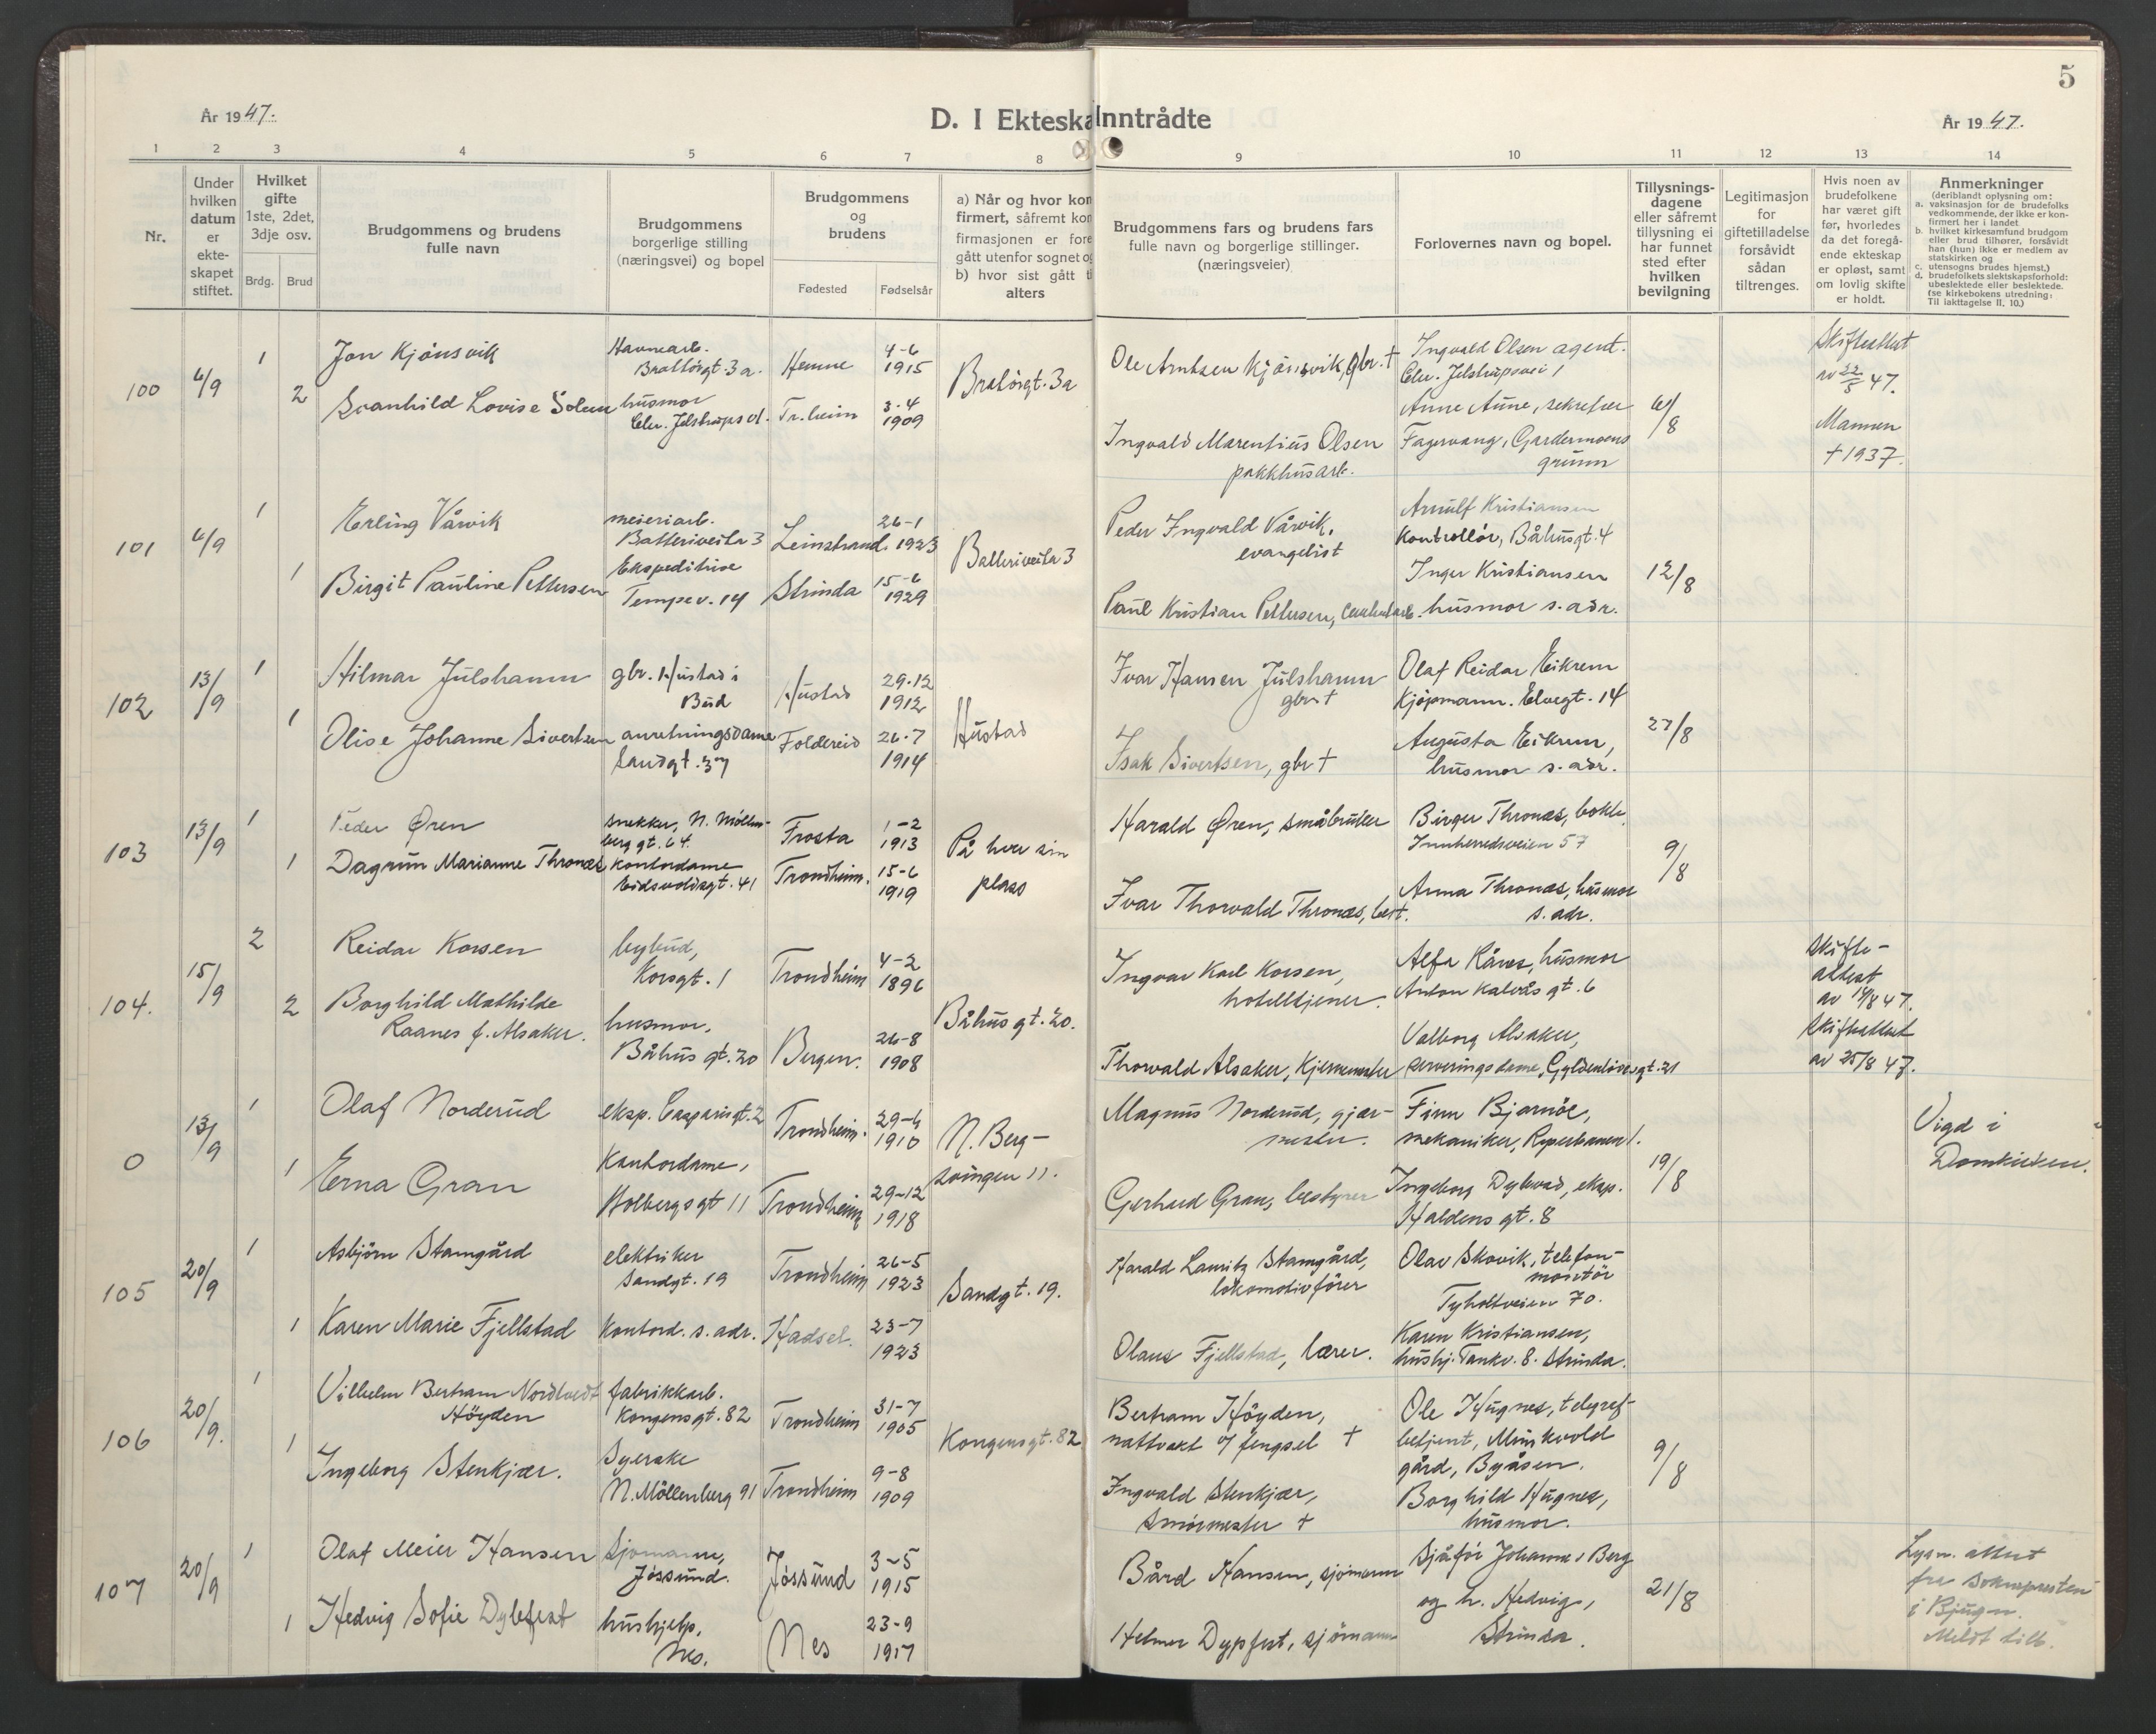 5
År 1947.
D. I Ekteska
Inntrådte
År 1947.
1 2 3 4 5 6 7 8 9 10 11 12 13 14
Nr.
Under
hvilken
datum
er
ekte-
skapet
stiftet.
Hvilket
gifte
1ste, 2det,
3dje osv.
Brdg. Brud
Brudgommens og brudens
fulle navn
Brudgommens
borgerlige stilling
(næringsvei) og bopel
Brudgommens
og
brudens
Fødested Fødselsår
a) Når og hvor kon
firmert, såfremt kon
firmasjonen er fore
gått utenfor sognet og
b) hvor sist gått ti
alters
Brudgommens fars og brudens fars
fulle navn og borgerlige stillinger.
(næringsveier)
Forlovernes navn og bopel.
Tillysnings-
dagene
eller såfremt
tillysning ei
har funnet
sted efter
hvilken
bevilgning
Legitimasjon
for
giftetilladelse
forsåvidt
sådan
tiltrenges.
Hvis noen av
brudefolkene
har været gift
før, hvorledes
da det foregå-
ende ekteskap
er opløst, samt
om lovlig skifte
er holdt.
Anmerkninger
(deriblandt oplysning om:
a. vaksinasjon for de brudefolks
vedkommende, der ikke er kon-
firmert her i landet
b. hvilket kirkesamfund brudgom
eller brud tilhører, forsåvidt
han (hun) ikke er medlem av
statskirken og
c. utensogns brudes hjemst.)
d. brudefolkets slektskapsforhold:
ubeslektede eller beslektede.
(se kirkebokens utredning:
Til iakttagelse II. 10.)
100
6/9
1
Jon Kjønsvik
Havnearb.
Brattörgt. 3 a.
Hemne
4-6
1915
Bratörgt. 3a
2
Svanhild Lovise Solem
husmor
Chr. Jelstrups v1.
Tr.heim
3-4
1909
Ole Arntsen Kjönsvik, gbr. †
Ingvald Marentius Olsen
pakkhusarb.
Ingvald Olsen agent.
Chr. Jelstrupsvei 1
Anne Aune, sekretær
Fagervang, Gardermoens
grunn
6/8
Skifteattest
av 22/5 47.
Mannen
† 1937.
101
6/9
1
Erling Vårvik
meieriarb.
Batteriveita 3
Leinstrand
26-1
1923
Batteriveita 3
1
Birgit Pauline Pettersen
Ekspeditrise
Tempev. 14
Strinda
15-6
1929
Peder Ingvald Vårvik,
evangelist
Paul Kristian Pettersen,
Arnulf Kristiansen
Kontrollör, Båhusgt. 4
Inger Kristiansen
husmor s. adr.
12/8
102
13/9
1
Hilmar Julshamn
gbr. Hustad i
Bud
Hustad
29-12
1912
Hustad
1
Olise Johanne Sivertsen
anretningsdame
Sandgt. 37
Foldereid
26-7
1914
Ivar Hansen Julshamn
gbr †
Isak Sivertsen, gbr †
Olaf Reidar Eikrem
Kjøpmann. Elvegt. 14
Augusta Eikrem,
husmor s. adr.
27/8
103
13/9
1
Peder Øren
snekker, N. Möllen-
berg gt. 64.
Frosta
1-2
1913
På hver sin
plass
1
Dagrun Marianne Thronæs
kontordame
Eidsvoldsgt. 41
Trondheim.
15-6
1919
Harald Øren, småbruker
Ivar Thorvald Thronæs, best.
Birger Thronæs, bokh.
Innherredsveien 57
Anna Thronæs, husmor
s. adr.
9/8
104.
15/9
2
Reidar Korsen
bybud,
Korsgt. 1
Trondheim
4-2
1896
Båhus gt. 20.
2
Borghild Mathilde
Raanes f. Alsaker.
husmor,
Båhus gt. 20
Bergen.
26-8
1908
Ingvar Karl Korsen,
hotelltjener.
Thorvald Alsaker, Kjernemester
Alfa Rånes, husmor
Anton Kalvås gt. 6
Valborg Alsaker,
serveringsdame, Gyldenlövesgt. 21
Skifte-
attest
av 14/8 47.
Skifteattest
av 25/8 47.
0
13/9
1
Olaf Norderud
eksp. Casparisgt. 2
Trondheim.
29-4
1910
N. Berg-
svingen 11.
1
Erna Gran
Kontordame,
Holbergsgt 11
Trondheim
29-12
1918
Magnus Norderud, gjær-
mester.
Gerhard Gran, bestyrer
Finn Bjørnöe,
mekaniker, Ryperbanen 1.
Ingeborg Dybvad, eksp.
Haldens gt. 8
19/8
Vigd i
Domkirken.
105
20/9
1
Asbjörn Stamgård
elektriker
Sandgt. 19
Trondheim
26-5
1923
Sandgt. 19.
1
Karen Marie Fjellstad
Kontord. s. adr.
Hadsel.
23-7
1923
Harald Lauritz Stamgård,
lokomotivförer
Olaus Fjellstad, lærer.
Olav Skovik, telefon-
montör
Tyholtveien 70.
Karen Kristiansen,
hushj. Tankv. 8. Strinda.
106
20/9.
1
Vilhelm Bertram Nordtvedt
Höyden
fabrikkarb.
Kongensgt. 82
Trondheim
31-7
1905
Kongensgt. 82
1
Ingeborg Stenkjær.
Syerske
N. Möllenberg 91
Trondheim
9-8
1909
Bertram Höyden,
nattvakt v/ fengsel †
Ingvald Stenkjær,
Smörmester †
Ole Hugnes, telegraf-
betjent, Munkvold
gård, Byåsen.
Borghild Hugnes,
husmor.
9/8
107
20/9
1
Olaf Meier Hansen
Sjømann,
Jössund.
Jössund
3-5
1915
1
Hedvig Sofie Dybfest
hushjelp,
Nes.
Nes
23-9
1917
Bård Hansen, sjömann
Helmer Dypfest, sjömann
Sjåför Johannes Berg
og h. Hedvig,
Strinda.
21/8
Lysn. attest
fra Soknepresten
i Bjugn.
Meldt tilb.